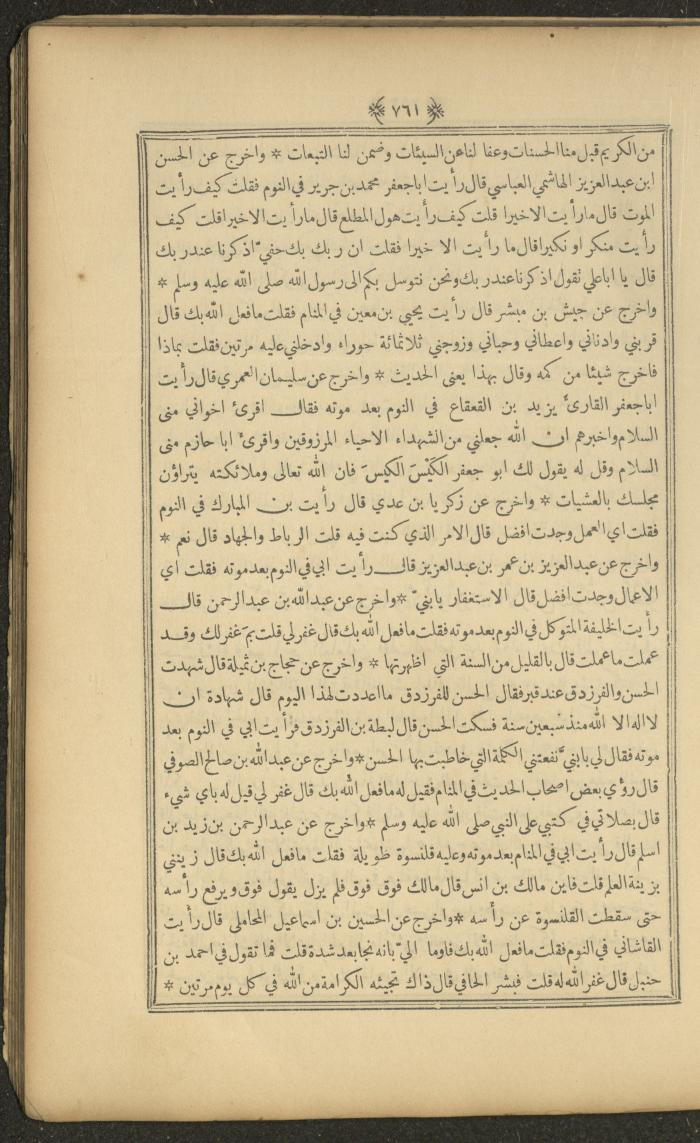 ﴿ ٧٦١ ﴾
من الكريم قبل منا الحسنات وعفا لنا عن السيئات وضمن لنا التبعات * واخرج عن الحسن
ابن عبد العزيز الهاشمي العباسي قال رأيت ابا جعفر محمد بن جرير في النوم فقلت كيف رأيت
الموت قال ما رأيت الا خيرا قلت كيف رأيت هول المطلع قال ما رأيت الا خيرا قلت كيف
رأيت منكر او نكيرا قال ما رأيت الا خيرا فقلت ان ربك بك حفيّ اذكرنا عند ربك
قال يا ابا علي تقول اذكرنا عند ربك ونحن نتوسل بكم الى رسول الله صلى الله عليه وسلم *
واخرج عن جيش بن مبشر قال رأيت يحيى بن معين في المنام فقلت ما فعل الله بك قال
قربني وادناني واعطاني وحباني وزوجني ثلاثمائة حوراء وادخلني عليه مرتين فقلت بماذا
فاخرج شيئا من كمه وقال بهذا يعنى الحديث * واخرج عن سليمان العمري قال رأيت
ابا جعفر القارئ يزيد بن القعقاع في النوم بعد موته فقال اقرئ اخواني منى
السلام واخبرهم ان الله جعلني من الشهداء الاحياء المرزوقين واقرئ ابا حازم منى
السلام وقل له يقول لك ابو جعفر الكَيْسَ الكيسَ فان الله تعالى وملائكته يتراؤن
مجلسك بالعشيات * واخرج عن زكريا بن عدي قال رأيت بن المبارك في النوم
فقلت اي العمل وجدت افضل قال الامر الذي كنت فيه قلت الرباط والجهاد قال نعم *
واخرج عن عبد العزيز بن عمر بن عبد العزيز قال رأيت ابي في النوم بعد موته فقلت اي
الاعمال وجدت افضل قال الاستغفار يا بنيّ * واخرج عن عبد الله بن عبد الرحمن قال
رأيت الخليفة المتوكل في النوم بعد موته فقلت ما فعل الله بك قال غفر لي قلت بمَ غفر لك وقد
عملت ما عملت قال بالقليل من السنة التي اظهرتها * واخرج عن حجاج بن ثميلة قال شهدت
الحسن والفرزدق عند قبر فقال الحسن للفرزدق ما اعددت لهذا اليوم قال شهادة ان
لا اله الا الله منذ سبعين سنة فسكت الحسن قال لبطة بن الفرزدق فرأيت ابي في النوم بعد
موته فقال لي يا بنيَّ نفعتني الكلمة التي خاطبت بها الحسن * واخرج عن عبد الله بن صالح الصوفي
قال رؤي بعض اصحاب الحديث في المنام فقيل له ما فعل الله بك قال غفر لي قيل له باي شيء
قال بصلاتي في كتبي على النبي صلى الله عليه وسلم * واخرج عن عبد الرحمن بن زيد بن
اسلم قال رأيت ابي في المنام بعد موته وعليه قلنسوة طويلة فقلت ما فعل الله بك قال زينني
بزينة العلم قلت فاين مالك بن انس قال مالك فوق فوق فلم يزل يقول فوق ويرفع رأسه
حتى سقطت القلنسوة عن رأسه * واخرج عن الحسين بن اسماعيل المحاملي قال رأيت
القاشاني في النوم فقلت ما فعل الله بك فاوما اليّ بانه نجا بعد شدة قلت فما تقول في احمد بن
حنبل قال غفر الله له قلت فبشر الحافي قال ذاك تجيئه الكرامة من الله في كل يوم مرتين *